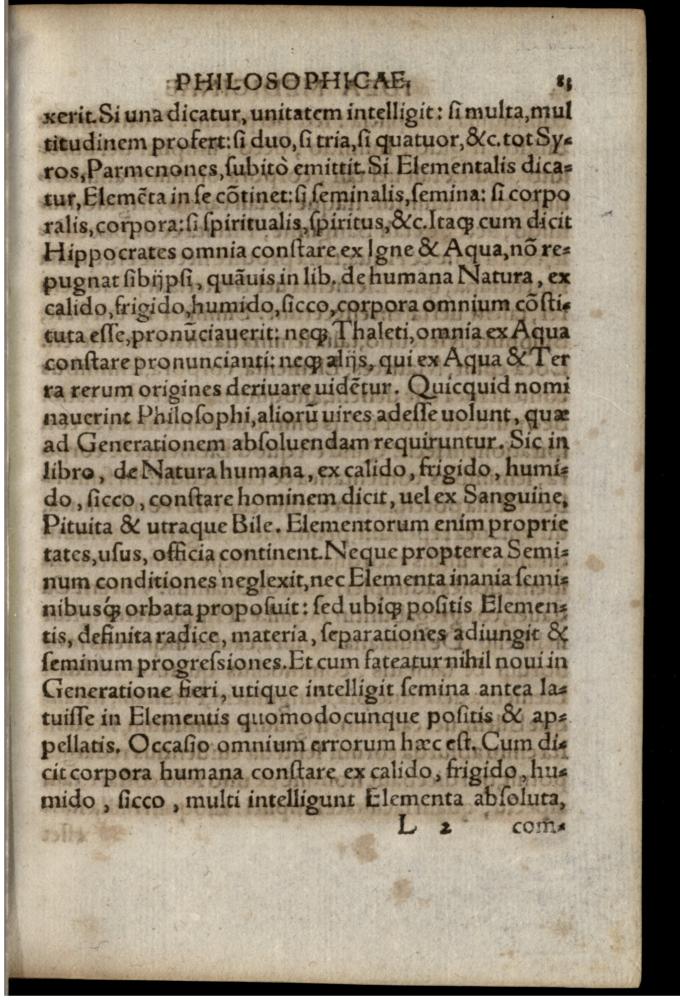 PHILOSOPHICAE. 83
xerit. Si una dicatur, unitatem intelligit: si multa, mul
titudinem profert: si duo, si tria, si quatuor, &c. tot Sy-
ros, Parmenones, subitò emittit. Si Elementalis dica-
tur, Elemẽta in se cõtinet: sj seminalis, semina: si corpo
ralis, corpora: si spiritualis, spiritus, &c. Itaq; cum dicit
Hippocrates omnia constare ex Igne & Aqua, nõ re-
pugnat sibijpsi, quãuis in lib. de humana Natura, ex
calido, frigido, humido, sicco, corpora omnium cõsti-
tuta esse, pronũciauerit: neq; Thaleti, omnia ex Aqua
constare pronuncianti: neq; alijs, qui ex Aqua & Ter
ra rerum origines deriuare uidẽtur. Quicquid nomi
nauerint Philosophi, aliorũ uires adesse uolunt, quæ
ad Generationem absoluendam requiruntur. Sic in
libro, de Natura humana, ex calido, frigido, humi-
do, sicco, constare hominem dicit, uel ex Sanguine,
Pituita & utraque Bile. Elementorum enim proprie
tates, usus, officia continent. Neque propterea Semi-
num conditiones neglexit, nec Elementa inania semi-
nibusq́; orbata proposuit: sed ubiq; positis Elemen-
tis, definita radice, materia, separationes adiungit &
seminum progressiones. Et cum fateatur nihil noui in
Generatione fieri, utique intelligit semina antea la-
tuisse in Elementis quomodocunque positis & ap-
pellatis. Occasio omnium errorum hæc est. Cum di-
cit corpora humana constare ex calido, frigido, hu-
mido, sicco, multi intelligunt Elementa absoluta,
L 2 com-